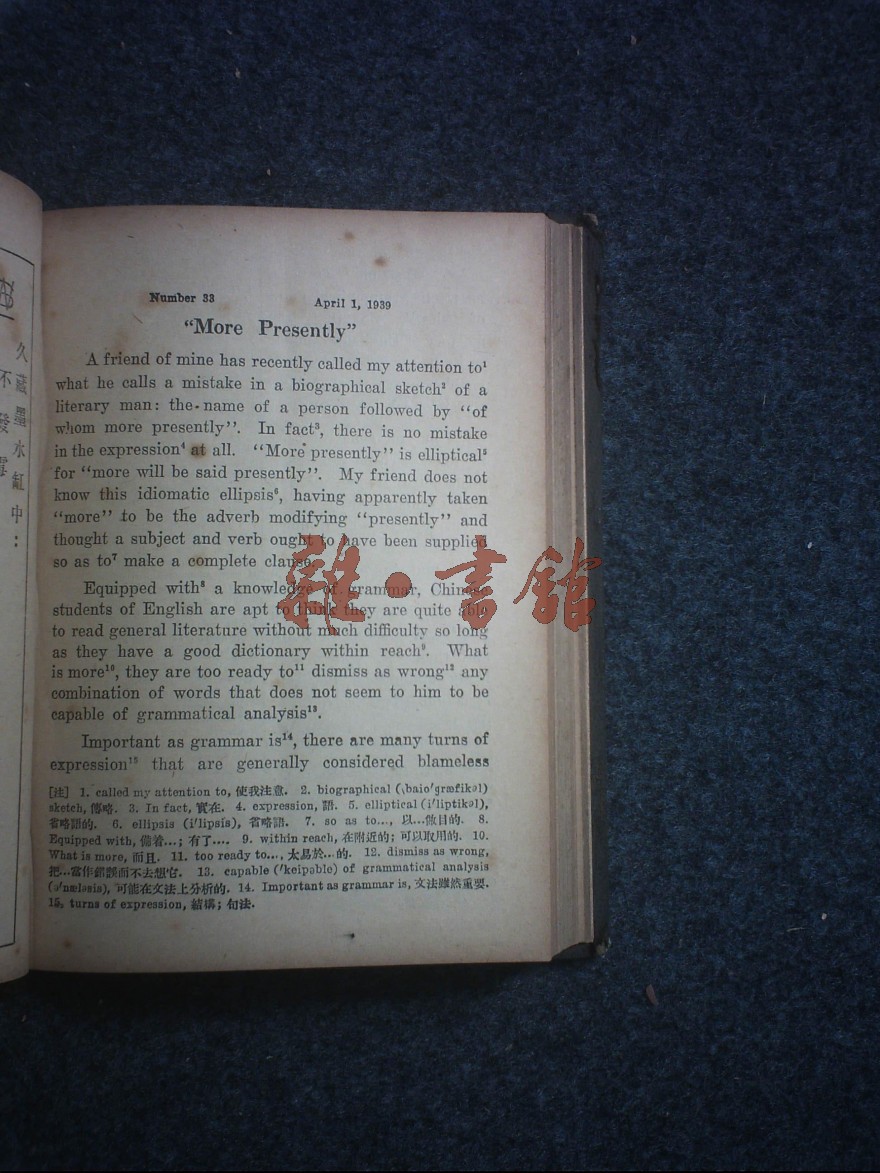 久藏墨水缸中：
不發霉
Number 33 April 1, 1939
“More Presently”
A friend of mine has recently called my attention to¹
what he calls a mistake in a biographical sketch² of a
literary man: the name of a person followed by “of
whom more presently”. In fact³, there is no mistake
in the expression⁴ at all. “More presently” is elliptical⁵
for “more will be said presently”. My friend does not
know this idiomatic ellipsis⁶, having apparently taken
“more” to be the adverb modifying “presently” and
thought a subject and verb ought to have been supplied
so as to⁷ make a complete clause.
Equipped with⁸ a knowledge of grammar, Chinese
students of English are apt to think they are quite able
to read general literature without much difficulty so long
as they have a good dictionary within reach⁹. What
is more¹⁰, they are too ready to¹¹ dismiss as wrong¹² any
combination of words that does not seem to him to be
capable of grammatical analysis¹³.
Important as grammar is¹⁴, there are many turns of
expression¹⁵ that are generally considered blameless
[注] 1. called my attention to, 使我注意. 2. biographical (ˌbaioˈgræfikəl)
sketch, 傳略. 3. In fact, 實在. 4. expression, 語. 5. elliptical (iˈliptikəl),
省略語的. 6. ellipsis (iˈlipsis), 省略語. 7. so as to..., 以...做目的. 8.
Equipped with, 備着...; 有了.... 9. within reach, 在附近的; 可以取用的. 10.
What is more, 而且. 11. too ready to..., 太易於...的. 12. dismiss as wrong,
把...當作錯誤而不去想它. 13. capable (ˈkeipəbl) of grammatical analysis
(əˈnæləsis), 可能在文法上分析的. 14. Important as grammar is, 文法雖然重要.
15. turns of expression, 結構; 句法.
雜·書館